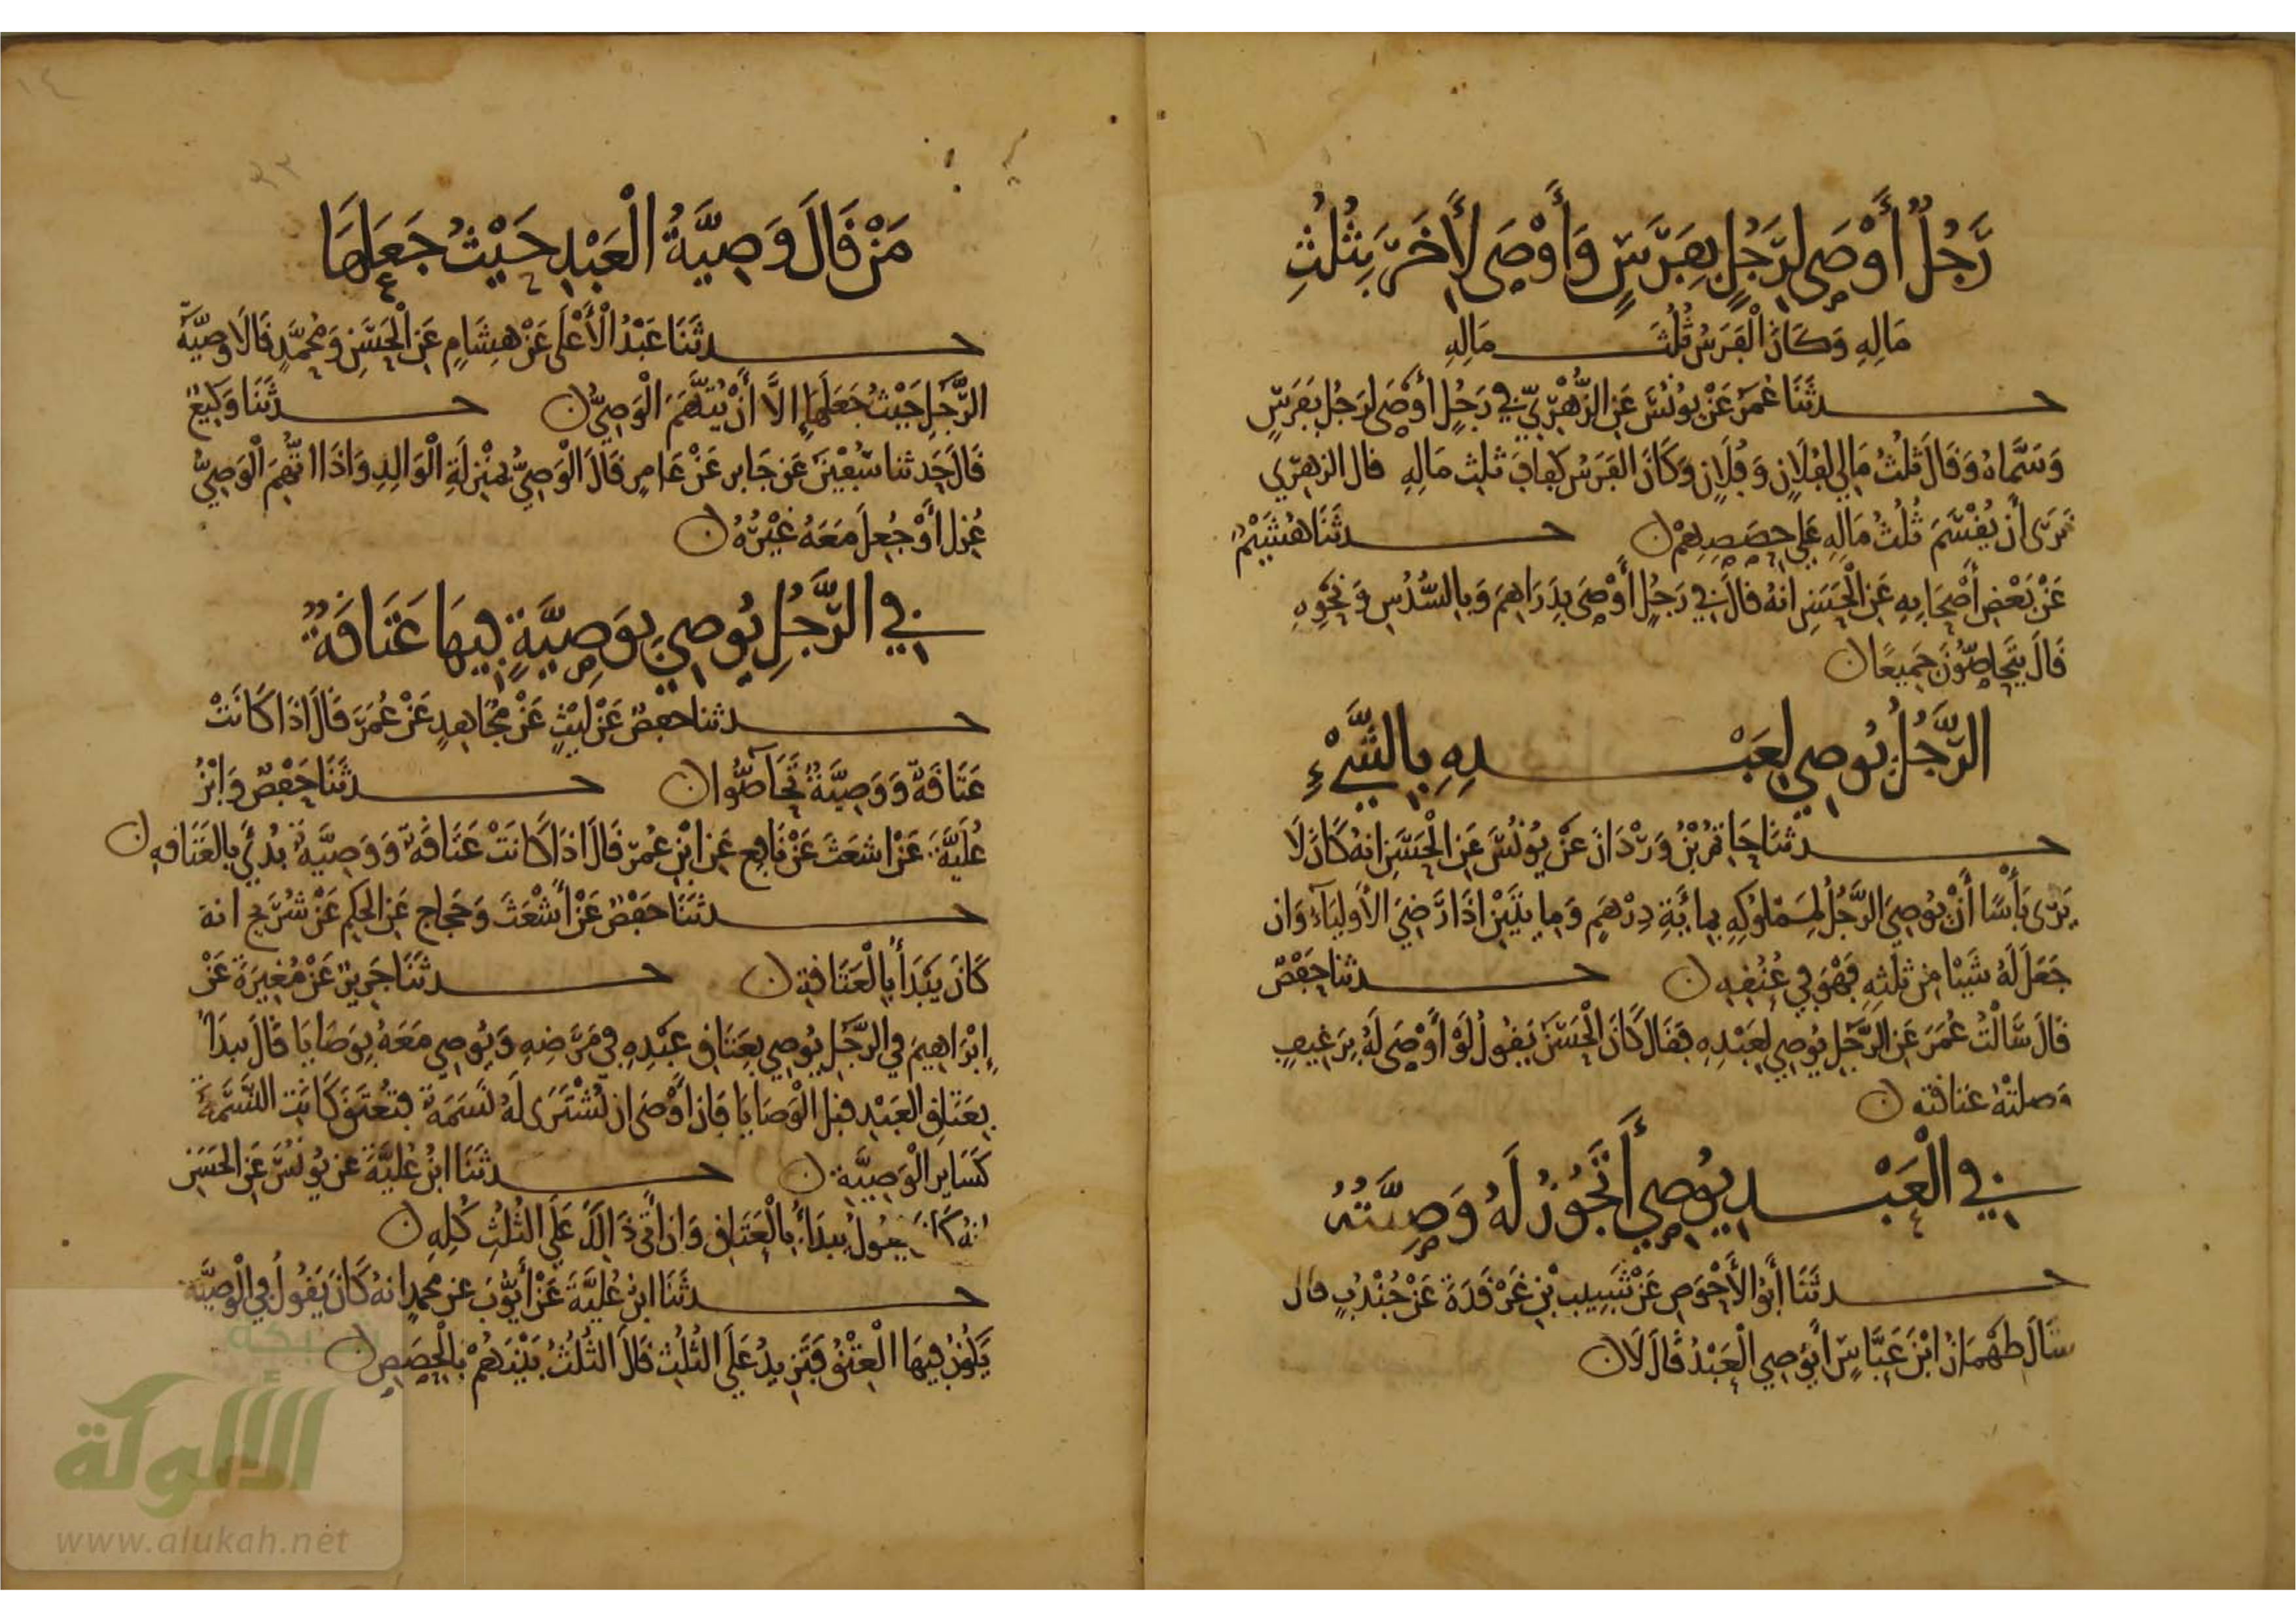 رَجُلٌ أَوْصَى لِرَجُلٍ بِفَرَسٍ وَأَوْصَى لِأَخَرَ بِثُلُثِ
مَالِهِ وَكَانَ الْفَرَسُ ثُلُثَ مَالِهِ
حدثَنَا عُمَرُ عَنْ يُونُسَ عَنِ الزُّهْرِيِّ فِي رَجُلٍ أَوْصَى لِرَجُلٍ بِفَرَسٍ
وَسَمَّاهُ وَقَالَ ثُلُثُ مَالِي لِفُلَانٍ وَفُلَانٍ وَكَانَ الفَرَسُ كفاف ثلث مَالِهِ قال الزهري
نَرَى أَن يُقْسَمَ ثُلُثُ مَالِهِ عَلَى حِصَصِهِمْ ن حدثَنَا هُشَيْمٌ
عَنْ بَعْضِ أَصْحَابِهِ عَنِ الْحَسَنِ انهُ قَالَ فِي رَجُلٍ أَوْصَى بِدَرَاهِمَ وَبِالسُّدُسِ وَنَحْوِهِ
قَالَ يَتَحَاصُّونَ جَمِيعًا ن
الرَّجُلُ يُوصِي لِعَبْدِهِ بِالشَّيْءِ
حدثَنَا حَاتِمُ بْنُ وَرْدَانَ عَنْ يُونُسَ عَنِ الْحَسَنِ انهُ كَانَ لَا
يَرَى بَأْسًا أَنْ يُوصِيَ الرَّجُلُ لِمَمْلُوكِهِ بِمِائَةِ دِرْهَمٍ وَمِايتَيْنِ اذَا رَضِيَ الأَولِيَآءُ وَان
جَعَلَ لَهُ شَيْئا مِنْ ثُلثِهِ فَهْوَ فِي عُنُقِهِ ن حدثنا حَفْصٌ
قَالَ سَأَلْتُ عُمَرَ عَنِ الرَّجُلِ يُوصِي لِعَبْدِهِ فَقَالَ كَانَ الْحَسَنُ يَقُولُ لَوْ أَوْصَى لَهُ بِرَغِيفٍ
وَصلتْهُ عَتاقته ن
فِي الْعَبْدِ يُوصِي أَتَجُوزُ لَهُ وَصِيَّتُهُ
حدثَنَا أَبُو الأَحْوَصِ عَنْ شَبِيبِ بْنِ غَرْقَدَةَ عَنْ جُنْدُبٍ قال
سَأَلَ طَهْمَانُ ابْنَ عَبَّاسٍ أَيُوصِي الْعَبْدُ قَالَ لَا ن
مَنْ قَالَ وَصِيَّةُ الْعَبْدِ حَيْثُ جَعَلَهَا
حدثَنَا عَبْدُ الْأَعْلَى عَنْ هِشَامٍ عَنِ الْحَسَنِ وَمُحَمَّدٍ قَالَا وَصِيَّةُ
الرَّجُلِ حَيْثُ جَعَلَهَا إِلَّا أَنْ يُتَّهَمَ الْوَصِيُّ ن حدثَنَا وَكِيعٌ
قَالَ حَدثنا سُفْيَن عَن جَابر عَنْ عَامِرٍ قَالَ الْوَصِيُّ بمَنْزِلَةِ الْوَالِدِ وَاذَا اتُّهِمَ الْوَصِيُّ
عُزِلَ أَوْ جُعِلَ مَعَهُ غَيْرُهُ ن
فِي الرَّجُلِ يُوصِي بِوَصِيَّةٍ فِيهَا عَتَاقَةٌ
حدثنا حفصٌ عَنْ لَيْثٍ عَنْ مُجَاهِدٍ عَنْ عُمَرَ قَالَ اذَا كَانَتْ
عَتَاقَةٌ وَوَصِيَّةٌ تَحَاصُّوا ن حدثَنَا حَفْصٌ وَابْنُ
عُلَيَّةَ عَنْ اشعَثَ عَنْ نَافِعٍ عَنِ ابْنِ عُمَرَ قَالَ اذَا كَانَتْ عَتَاقَةٌ وَوَصِيَّةٌ بُدِئَ بِالعَتَاقةِ ن
حدثَنَا حَفْصٌ عَنْ أَشْعَثَ وَحَجاج عَنِ الحَكَمِ عَنْ شُرَيْحٍ انهُ
كَانَ يَبْدَأُ بِالْعَتَاقَةِ ن حدثَنَا جَرِيرٌ عَنْ مُغِيرَةَ عَنْ
إِبْرَاهِيمَ فِي الرَّجُلِ يُوصِي بِعَتَاقِ عَبْدِهِ فِي مَرَضِهِ وَيُوصِي مَعَهُ بِوَصَايَا قَالَ يبدَأُ
بِعَتَاقِ العَبْدِ قبل الْوَصَايَا فَان أَوْصَى ان تُشْتَرَى لَهُ نَسَمَة فتُعْتَقَ كَانَت النَّسَمَةُ
كَسَايِرِ الْوَصِيَّةِ ن حدثَنَا ابْنُ عُلَيَّةَ عن يُونُسَ عَنِ الحَسَنِ
انهُ كَانَ يقولُ يبدَأُ بِالْعَتَاقِ وَان اتى ذَالِكَ عَلَى الثُلُثِ كُلِهِ ن
حدثَنَا ابْنُ عُلَيَّةَ عَنْ أَيُّوبَ عَن مُحمدٍ انهُ كَانَ يَقُولُ فِي الْوَصِيَّةِ
يَكُونُ فِيهَا الْعِتْقُ فَتَزِيدُ عَلَى الثُلُثِ قَالَ الثُلُثُ بَيْنَهُمْ بِالْحِصَصِ ن
شبكة
الألوكة
www.alukah.net